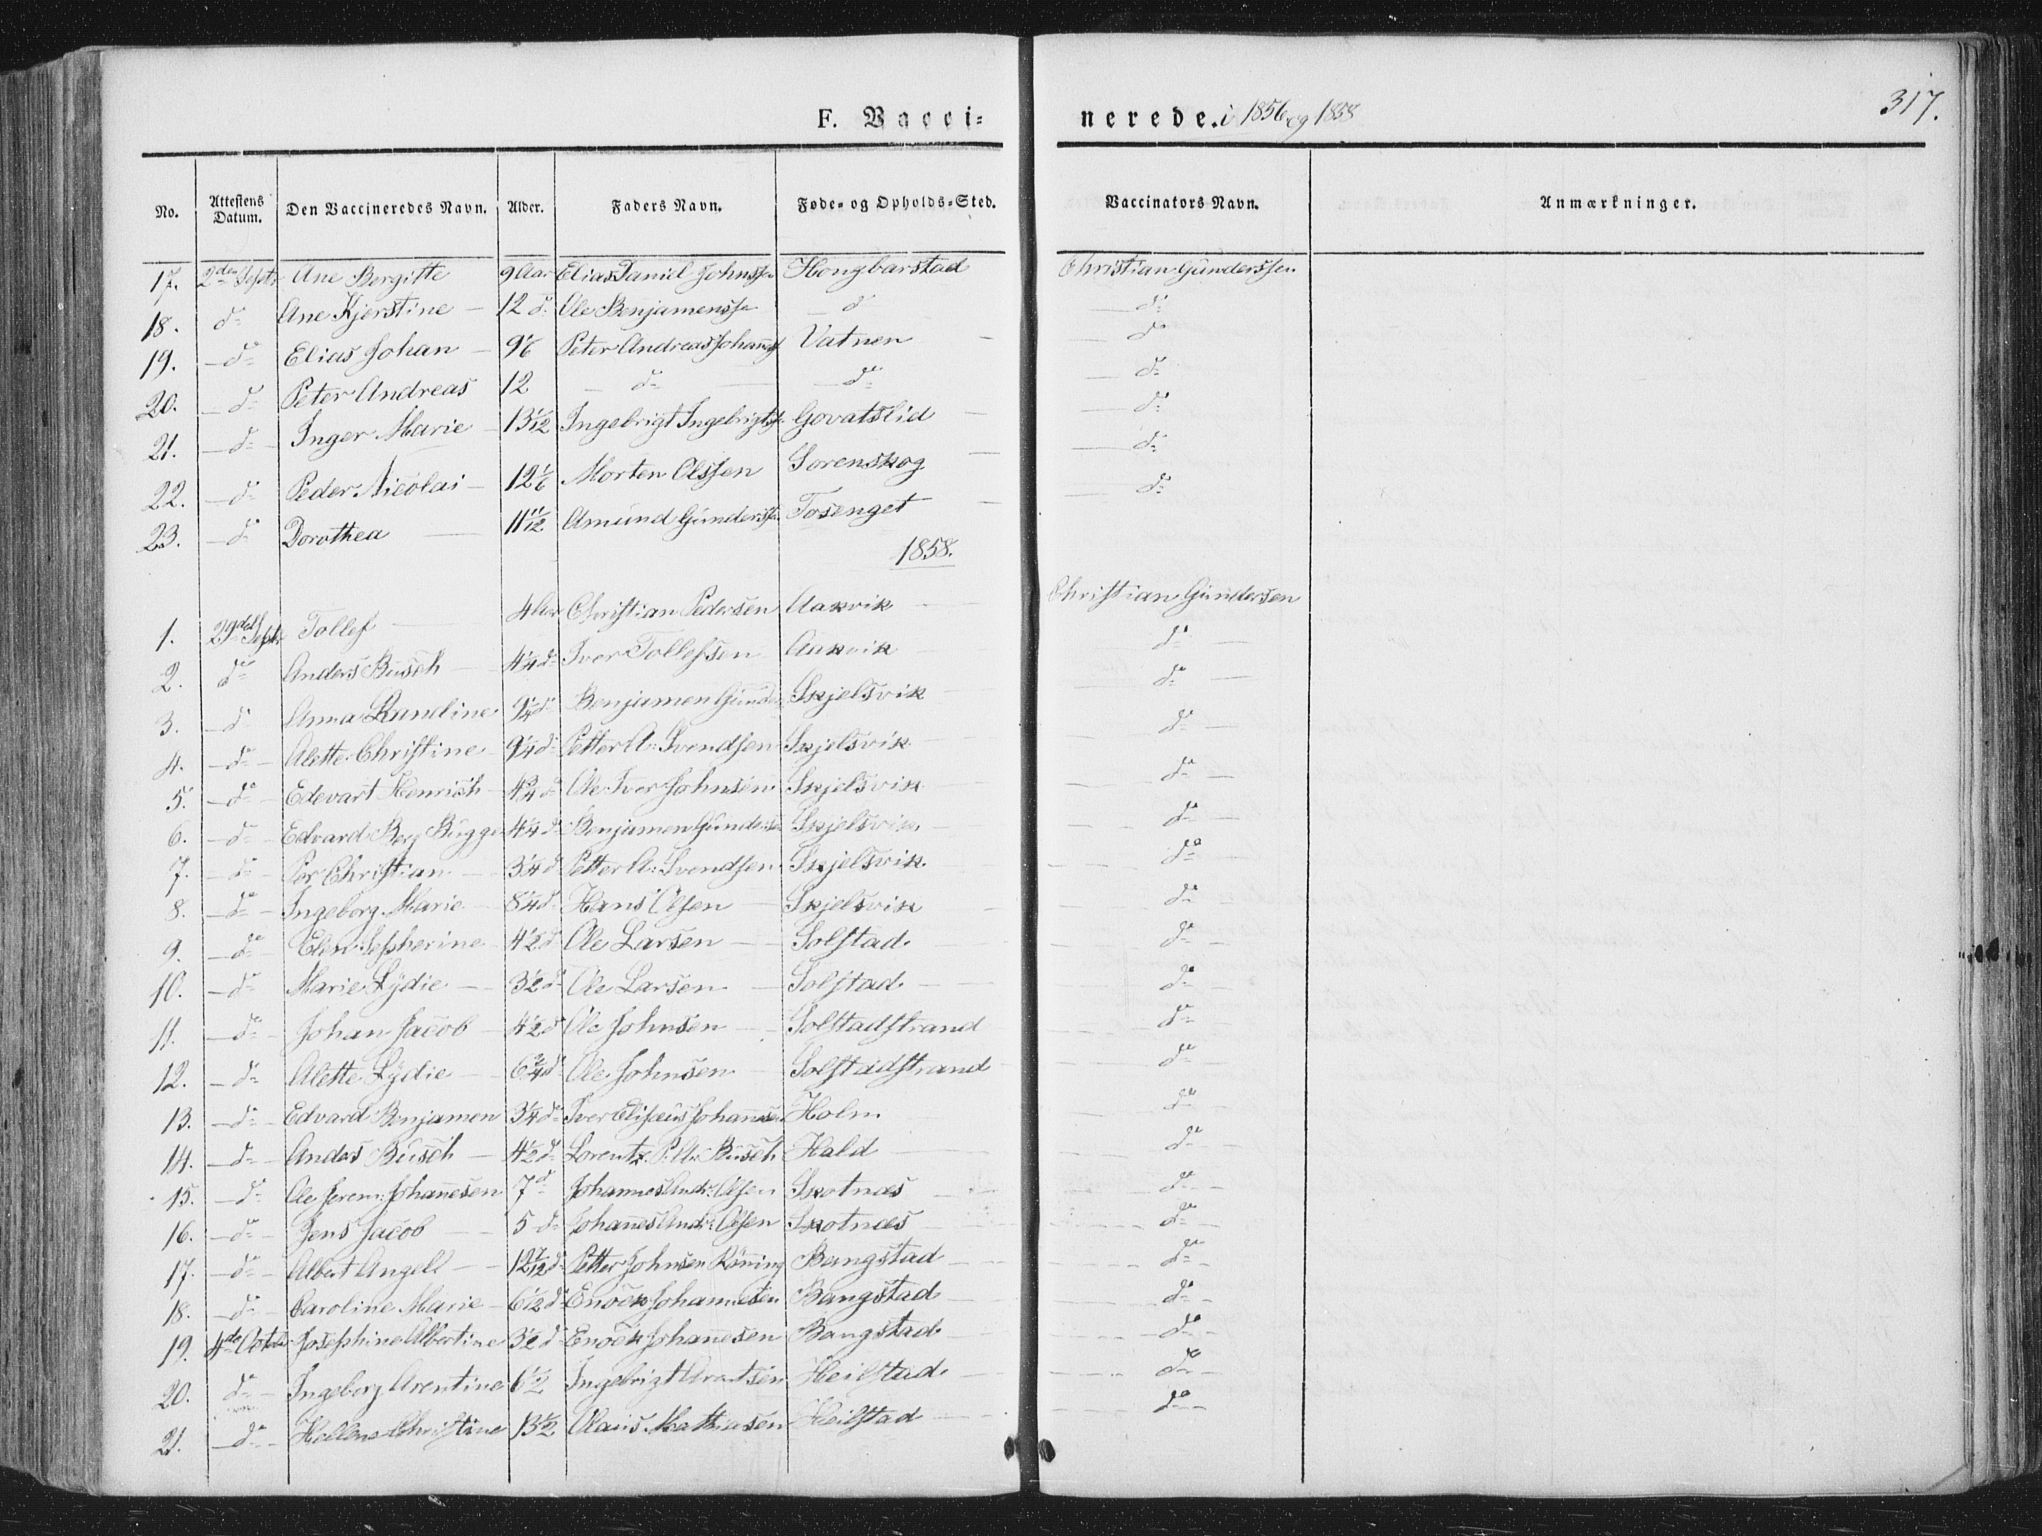 317.
F. Vacci= nerede. i 1856 og 1858
No. Attestens Datum. Den Vaccineredes Navn. Alder. Faders Navn. Føde= og Opholds=Sted. Vaccinators Navn. Anmærkninger.
17. 2den Septr Ane Bergitte 9 Aar Elias Daniel Johnss. Hongbarstad Christian Gunderssen
18. d= Ane Kjerstine - 12 d= Ole Benjamenss. - d - d=
19. - d= Elias Johan - 9 1/6 Peter Andreas Johans Vatnen - - d=
20. - d= Peter Andreas 12 - d= - d= - d=
21. - d= Inger Marie - 13 1/12 Ingebrigt Ingebrigts. Govatslid - - d=
22. - d= Peder Nicolai - 12 1/6 Morten Olssen Sorenskog - - d=
23. - d= Dorothea - 11 11/12 Amund Gunderss. Tosenget - - d=
1858.
1. 29de Septr Tollef - 4 Aar Christian Pedersen Aakvik - Christian Gundersen
2. d= Anders Busch - 4 1/4 d= Iver Tollefsen Aakvik - d= -
3. d= Anna Randine 9 1/4 d= Benjamen Gunder Skjelsvik - d= -
4. - d= Alette Christine - 9 1/4 d= Petter A: Svendsen Skjelsvik - d= -
5. - d= - Edevart Henrich - 4 3/4 d= Ole Iver Johnsen Skjelsvik - d= -
6. - d= - Edvard Berg Bugge 4 1/4 d= Benjamen Gunders Skjelsvik - d= -
7. - d= - Per Christian - 3 1/4 d= Petter A: Svendsen Skjelsvik d= -
8. - d= - Ingeborg Marie - 8 1/4 d= Hans Olsen - Skjelsvik - d= -
9. - d= - Elen Jespherine - 4 1/2 d= Ole Larsen - Solstad - d= -
10. - d= - Marie Lydie - 3 1/2 d= Ole Larsen - Solstad - d=
11. - d= Johan Jacob - 4 1/2 d= Ole Johnsen - Solstadstrand d=
12. - d= Alette Lydie - 6 3/4 d= Ole Johnsen - Solstadstrand - d= -
13. - d= - Edvard Benjamen 3 1/4 d= Iver Elisæus Johannsen Holm - d=
14. - d= - Anders Busch - 4 1/2 d= Lorentz P. A: Busch Hald - d= -
15. - d= Ole Jerem: Johanesen 7 d= Johannes And: Olsen Skotnæs - d= -
16. - d= - Jens Jacob - 5 d= Johanes And: Olsen Skotnæs - d= -
17. - d= - Albert Angell - 12 7/12 d= Petter Johnsen Röning Bangstad - d= -
18. - d= - Caroline Marie - 6 1/2 d= Enoch Johannesen Bangstad - d= -
19. 4de Octob Josephine Albertine 3 1/2 d= Enoch Johanesen Bangstad - d= -
20. d= - Ingeborg Arentine 6 1/2 Ingebrigt Arntsen Heilstad - d= -
21. - d= - Hellene Christine 13 1/2 Olaus Mathiasen Heilstad - d= -